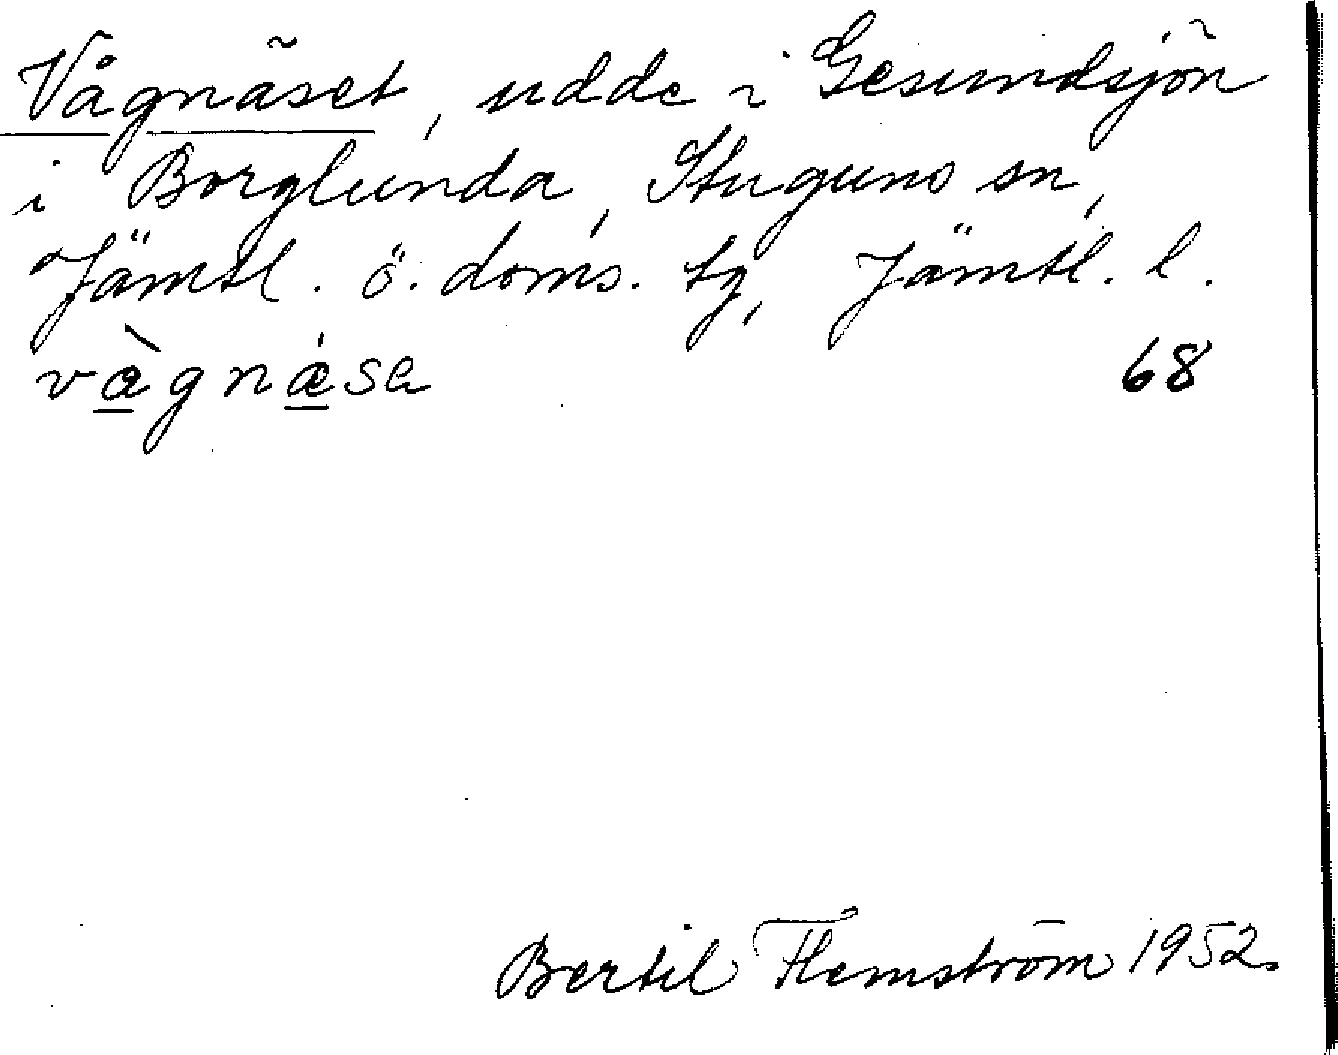 Vågnäset, udde i Gesundsjön
i Borglunda, Stuguns sn,
Jämtl. ö. doms. tg, Jämtl. l.
và̲gnǽ̲sa 68
Bertil Flemström 1952.